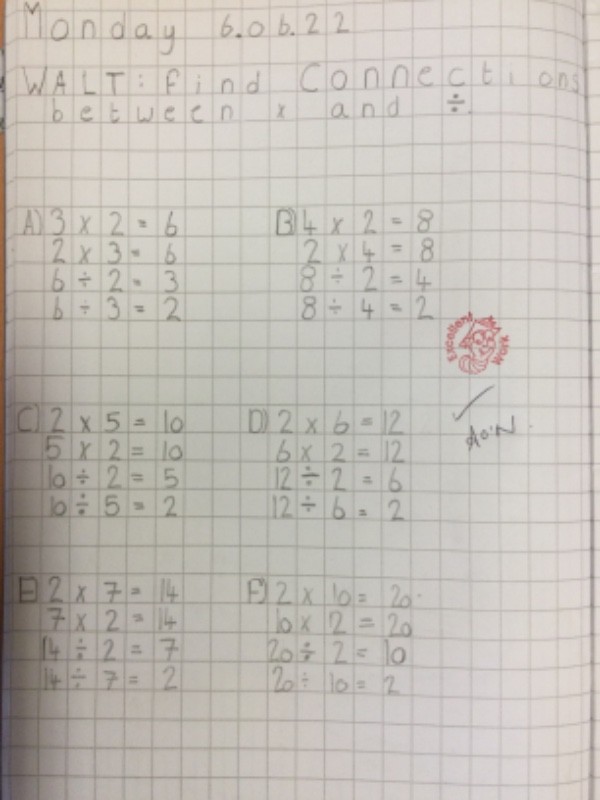 Monday 6.06.22
WALT: find Connections
between x and ÷.
A) 3 x 2 = 6
2 x 3 = 6
6 ÷ 2 = 3
6 ÷ 3 = 2
B) 4 x 2 = 8
2 x 4 = 8
8 ÷ 2 = 4
8 ÷ 4 = 2
Excellent
Work
C) 2 x 5 = 10
5 x 2 = 10
10 ÷ 2 = 5
10 ÷ 5 = 2
D) 2 x 6 = 12
6 x 2 = 12
12 ÷ 2 = 6
12 ÷ 6 = 2
E) 2 x 7 = 14
7 x 2 = 14
14 ÷ 2 = 7
14 ÷ 7 = 2
F) 2 x 10 = 20
10 x 2 = 20
20 ÷ 2 = 10
20 ÷ 10 = 2